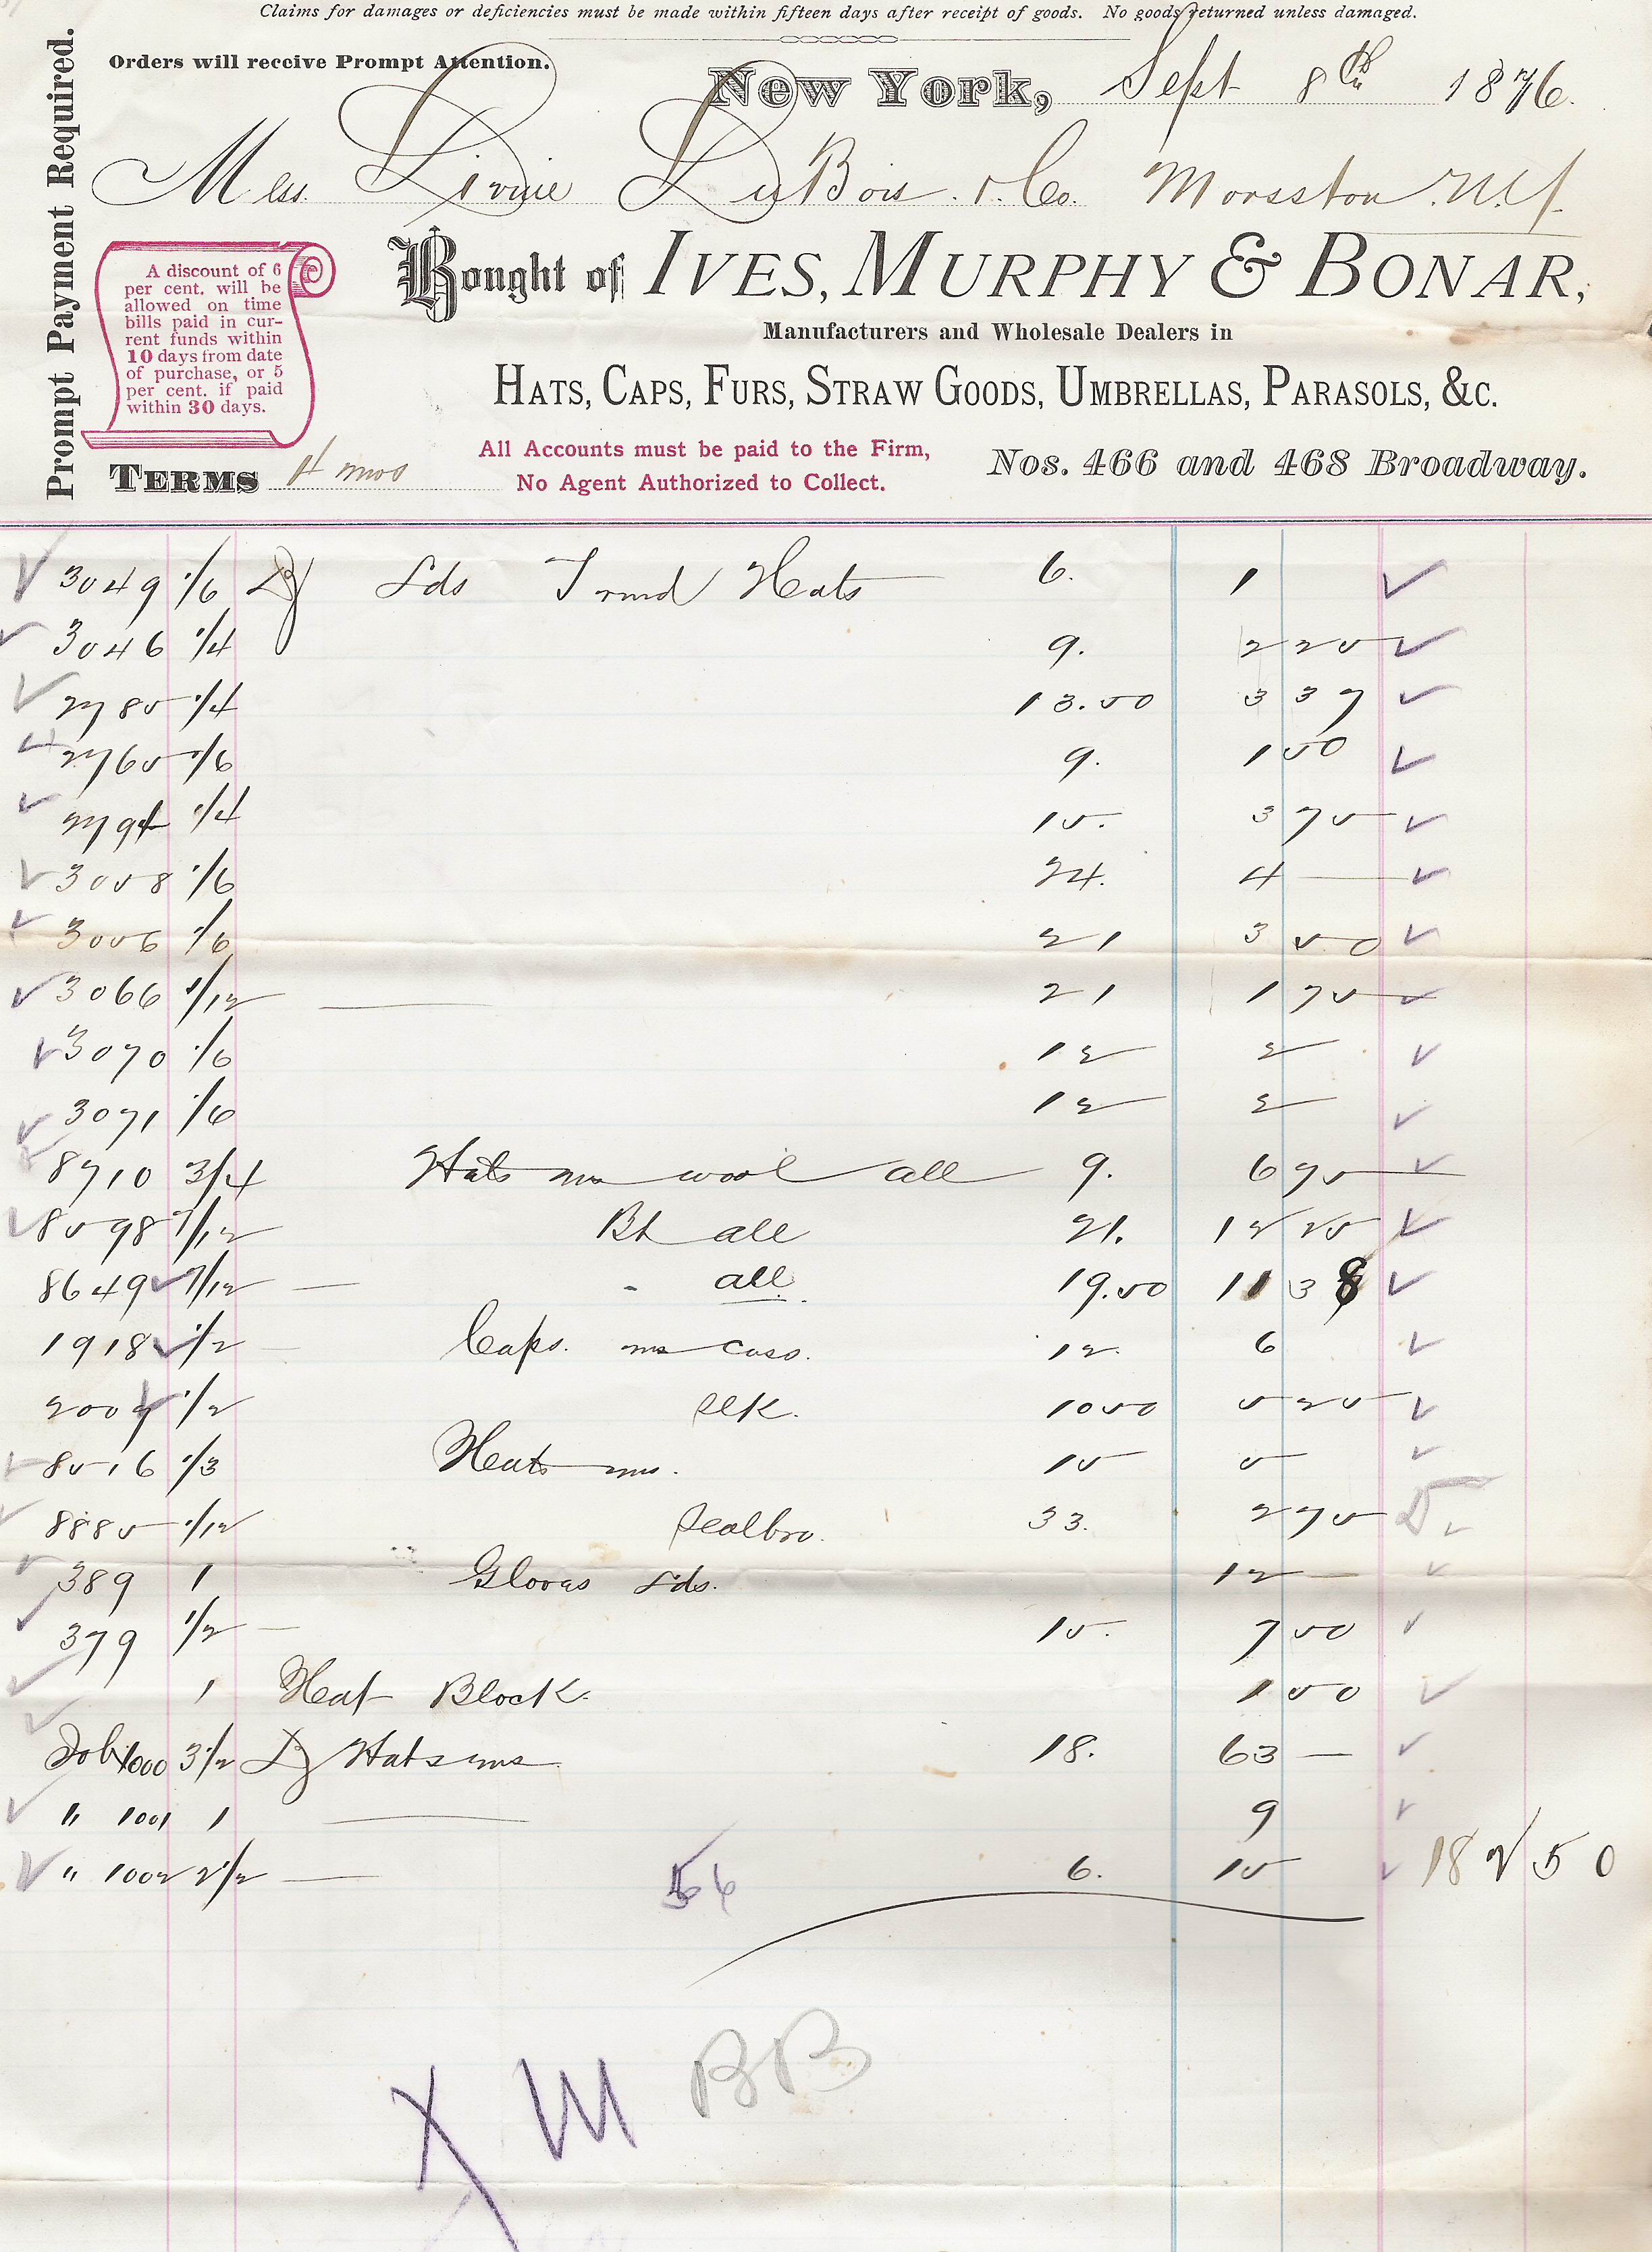 Claims for damages or deficiencies must be made within fifteen days after receipt of goods. No goods returned unless damaged.
Prompt Payment Required.
Orders will receive Prompt Attention.
New York, Sept 8th 1876.
Mess. Divine DuBois & Co. Morsston N.Y.
A discount of 6
per cent. will be
allowed on time
bills paid in cur-
rent funds within
10 days from date
of purchase, or 5
per cent. if paid
within 30 days.
Bought of IVES, MURPHY & BONAR,
Manufacturers and Wholesale Dealers in
HATS, CAPS, FURS, STRAW GOODS, UMBRELLAS, PARASOLS, &C.
TERMS 4 mos
All Accounts must be paid to the Firm,
No Agent Authorized to Collect.
Nos. 466 and 468 Broadway.
3049 1/6 Dz Lds Trmd Hats 6. 1
3046 1/4 9. 2 25
2785 1/4 13.50 3 37
2765 1/6 9. 1 50
2794 1/4 15. 3 75
3058 1/6 24. 4 —
3056 1/6 21 3 50
3066 1/12 — 21 1 75
3070 1/6 12 2
3071 1/6 12 2
8710 3/4 Hats ms wool all 9. 6 75
8598 7/12 all 21. 12 25
8649 7/12 — all 19.50 11 38
1918 1/2 Caps. ms cass. 12. 6
2007 1/2 silk. 10 50 5 25
8516 1/3 Hats ms. 15 5
8885 1/12 Sealbro. 33. 2 75
389 1 Gloves Lds. 12 —
379 1/2 — 15. 7 50
1 Hat Block. 1 50
Job 1000 3 1/2 Dz Hats ms 18. 63 —
" 1001 1 — 9
" 1002 2 1/2 — 6. 15 182 50
X M BB